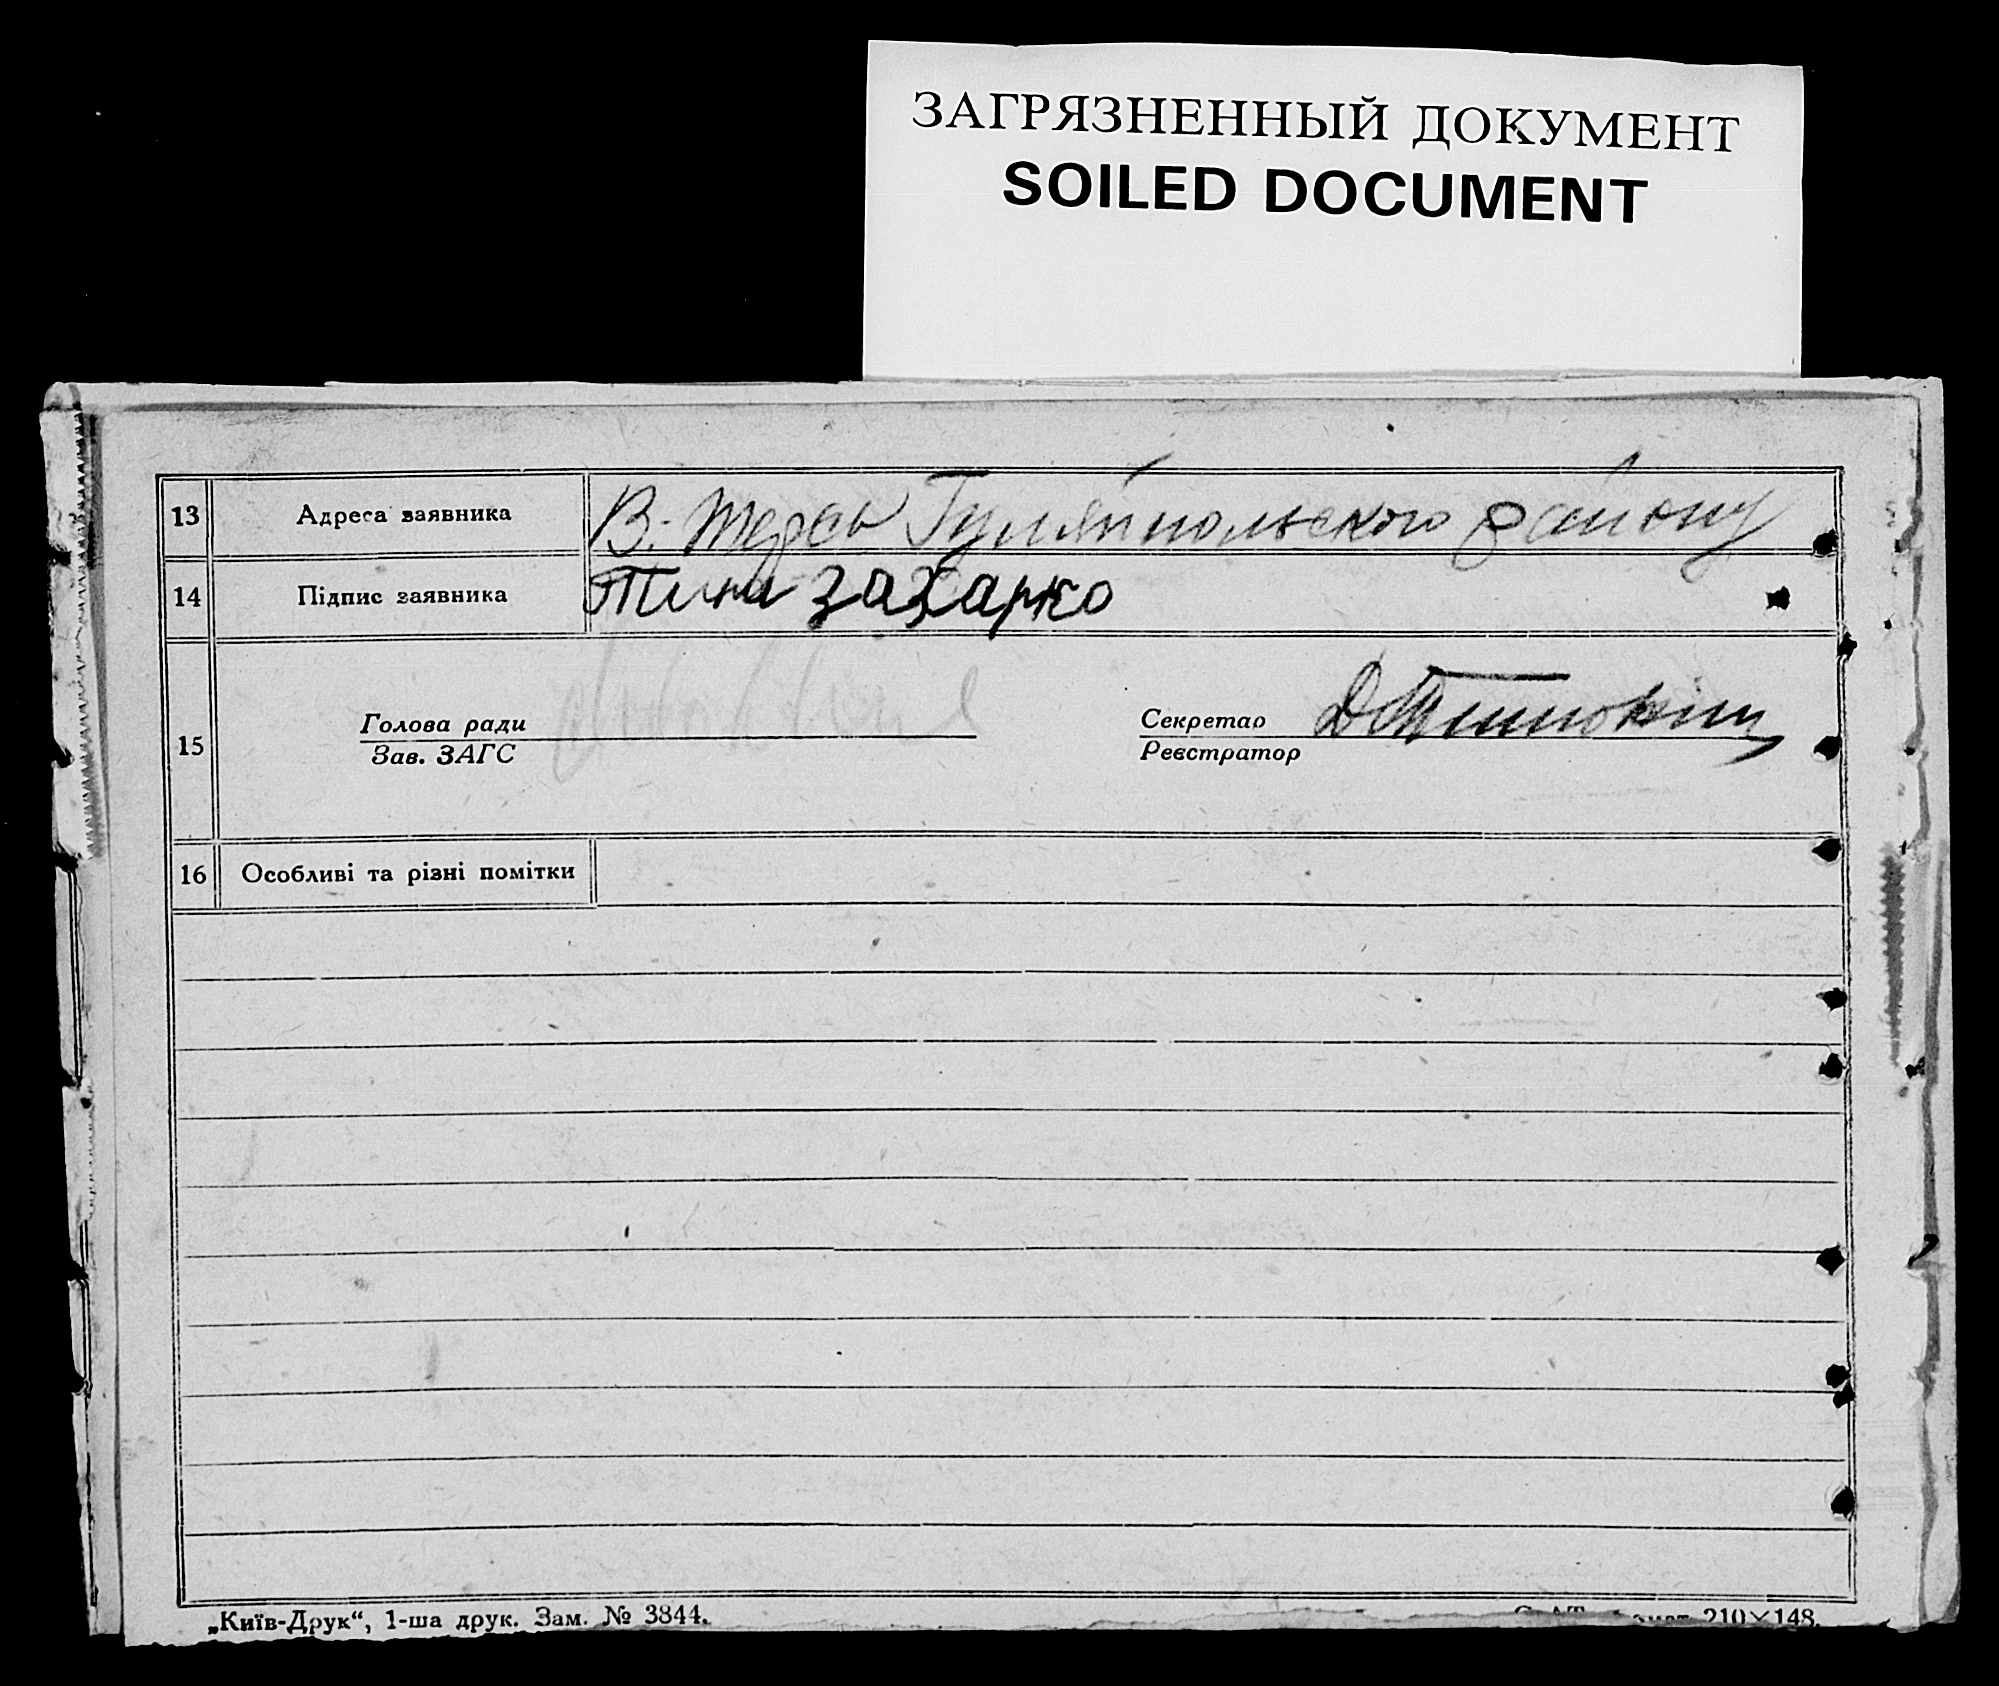 ЗАГРЯЗНЕННЫЙ ДОКУМЕНТ
SOILED DOCUMENT
13 Адреса заявника В. Терсь Гуляйпольского району
14 Підпис заявника Тина Захарко
15 Голова ради Секретар
Зав. ЗАГС Реєстратор
16 Особливі та різні помітки
„Київ-Друк“, 1-ша друк. Зам. № 3844.
210×148.